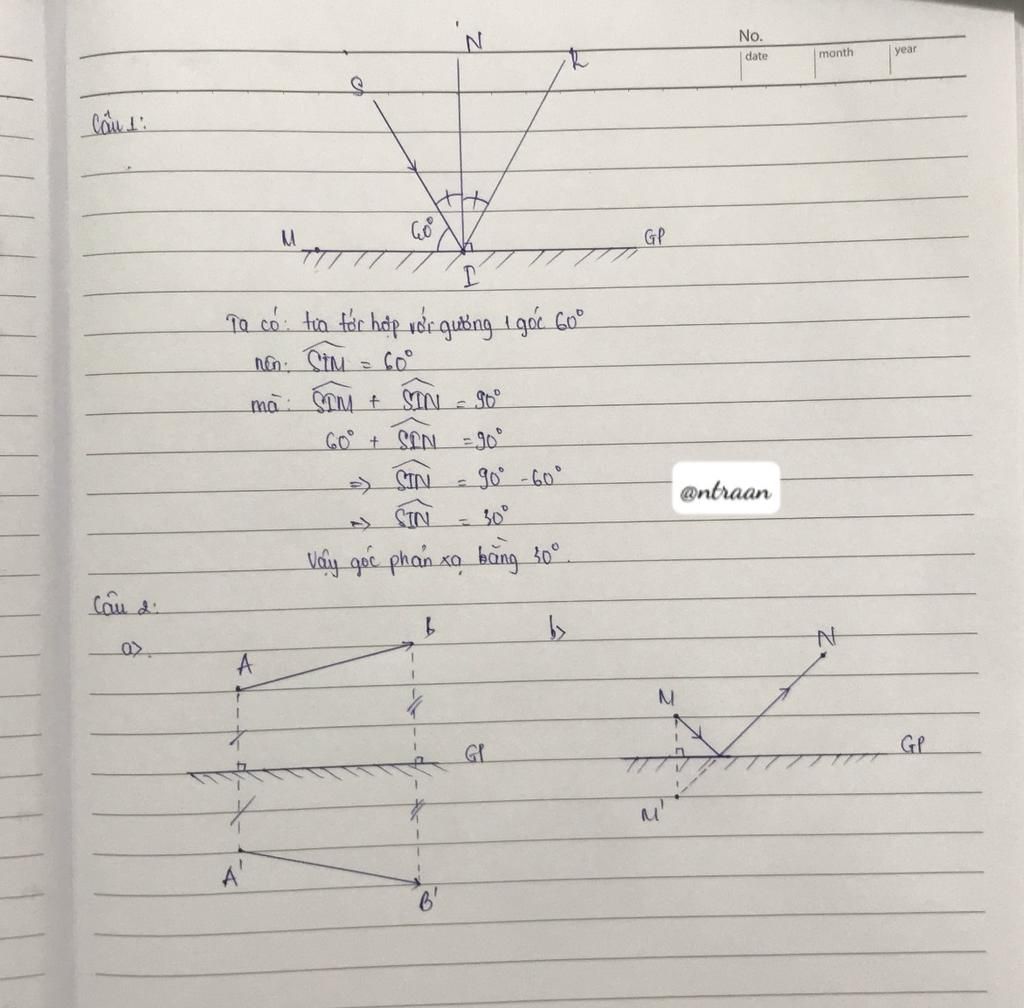 No.
date month year
N
S R
Câu 1:
60°
M GP
I
Ta có: tia tới hợp với gương 1 góc 60°
nên: SIM = 60°
mà: SIM + SIN = 90°
60° + SIN = 90°
=> SIN = 90° - 60°
=> SIN = 30°
@ntraan
Vậy góc phản xạ bằng 30°.
Câu 2:
a>. b>
A B
GP
A' B'
M N
GP
M'